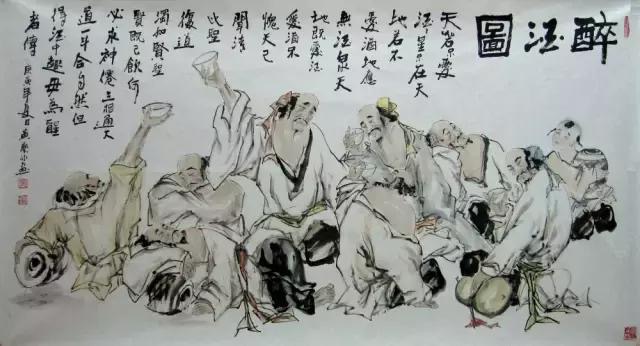 醉酒圖
天若不愛
酒星不在天
地若不
愛酒地應
無酒泉天
地既愛酒
愛酒不
愧天已
聞清
比聖
復道
濁如賢聖
賢既已飲何
必求神僊三桮通大
道一斗合自然但
得酒中趣毋為醒
者傳